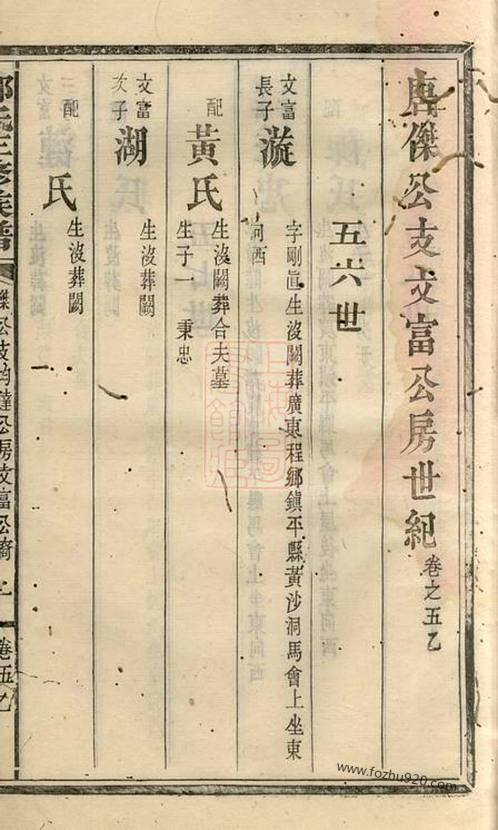 唐傑公支文富公房世紀 卷之五乙
五六世
文富長子 漩 字剛眞生沒闕葬廣東程鄉鎭平縣黃沙洞馬會上坐東向西
配 黃氏 生沒闕葬合夫墓
生子一 秉忠
文富次子 湖 生沒葬闕
配 氏 生沒葬闕
氏三修族譜
卷五乙
www.fozhu920.com